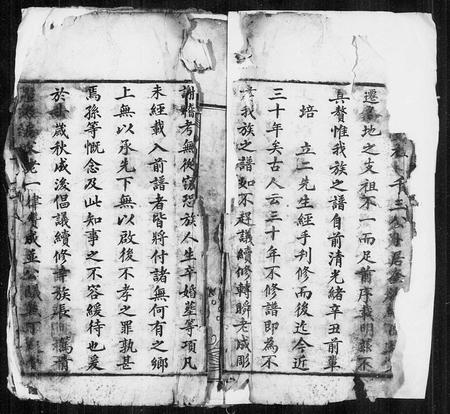 千三公分居
遷各地之支祖不一而足前序載明茲不
具贅惟我族之譜自前清光緒辛丑前輩
培 立二先生經手刋修而後迄今近
三十年矣古人云三十年不修譜即為不
我族之譜如不趕議續修轉瞬老成彫
謝稽考無從竊恐族人生卒婚塟等項凡
未經載入前譜者皆將付諸無何有之鄉
上無以承先下無以啟後不孝之罪孰甚
焉孫等慨念及此知事之不容緩待也爰
於 歲秋成後倡議續修 族長
老一律贊成並公